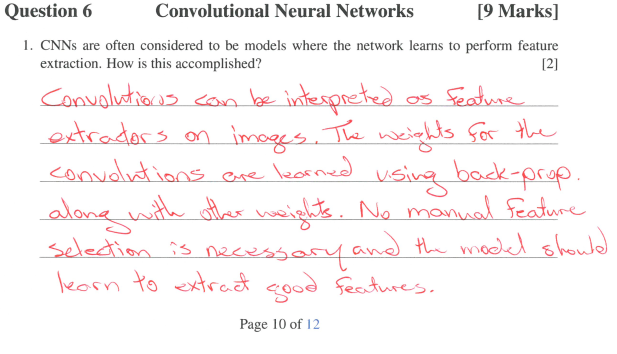 Question 6 Convolutional Neural Networks [9 Marks]
1. CNNs are often considered to be models where the network learns to perform feature
extraction. How is this accomplished? [2]
Convolutions can be interpreted as feature
extractors on images. The weights for the
convolutions are learned using back-prop.
along with other weights. No manual feature
selection is necessary and the model should
learn to extract good features.
Page 10 of 12